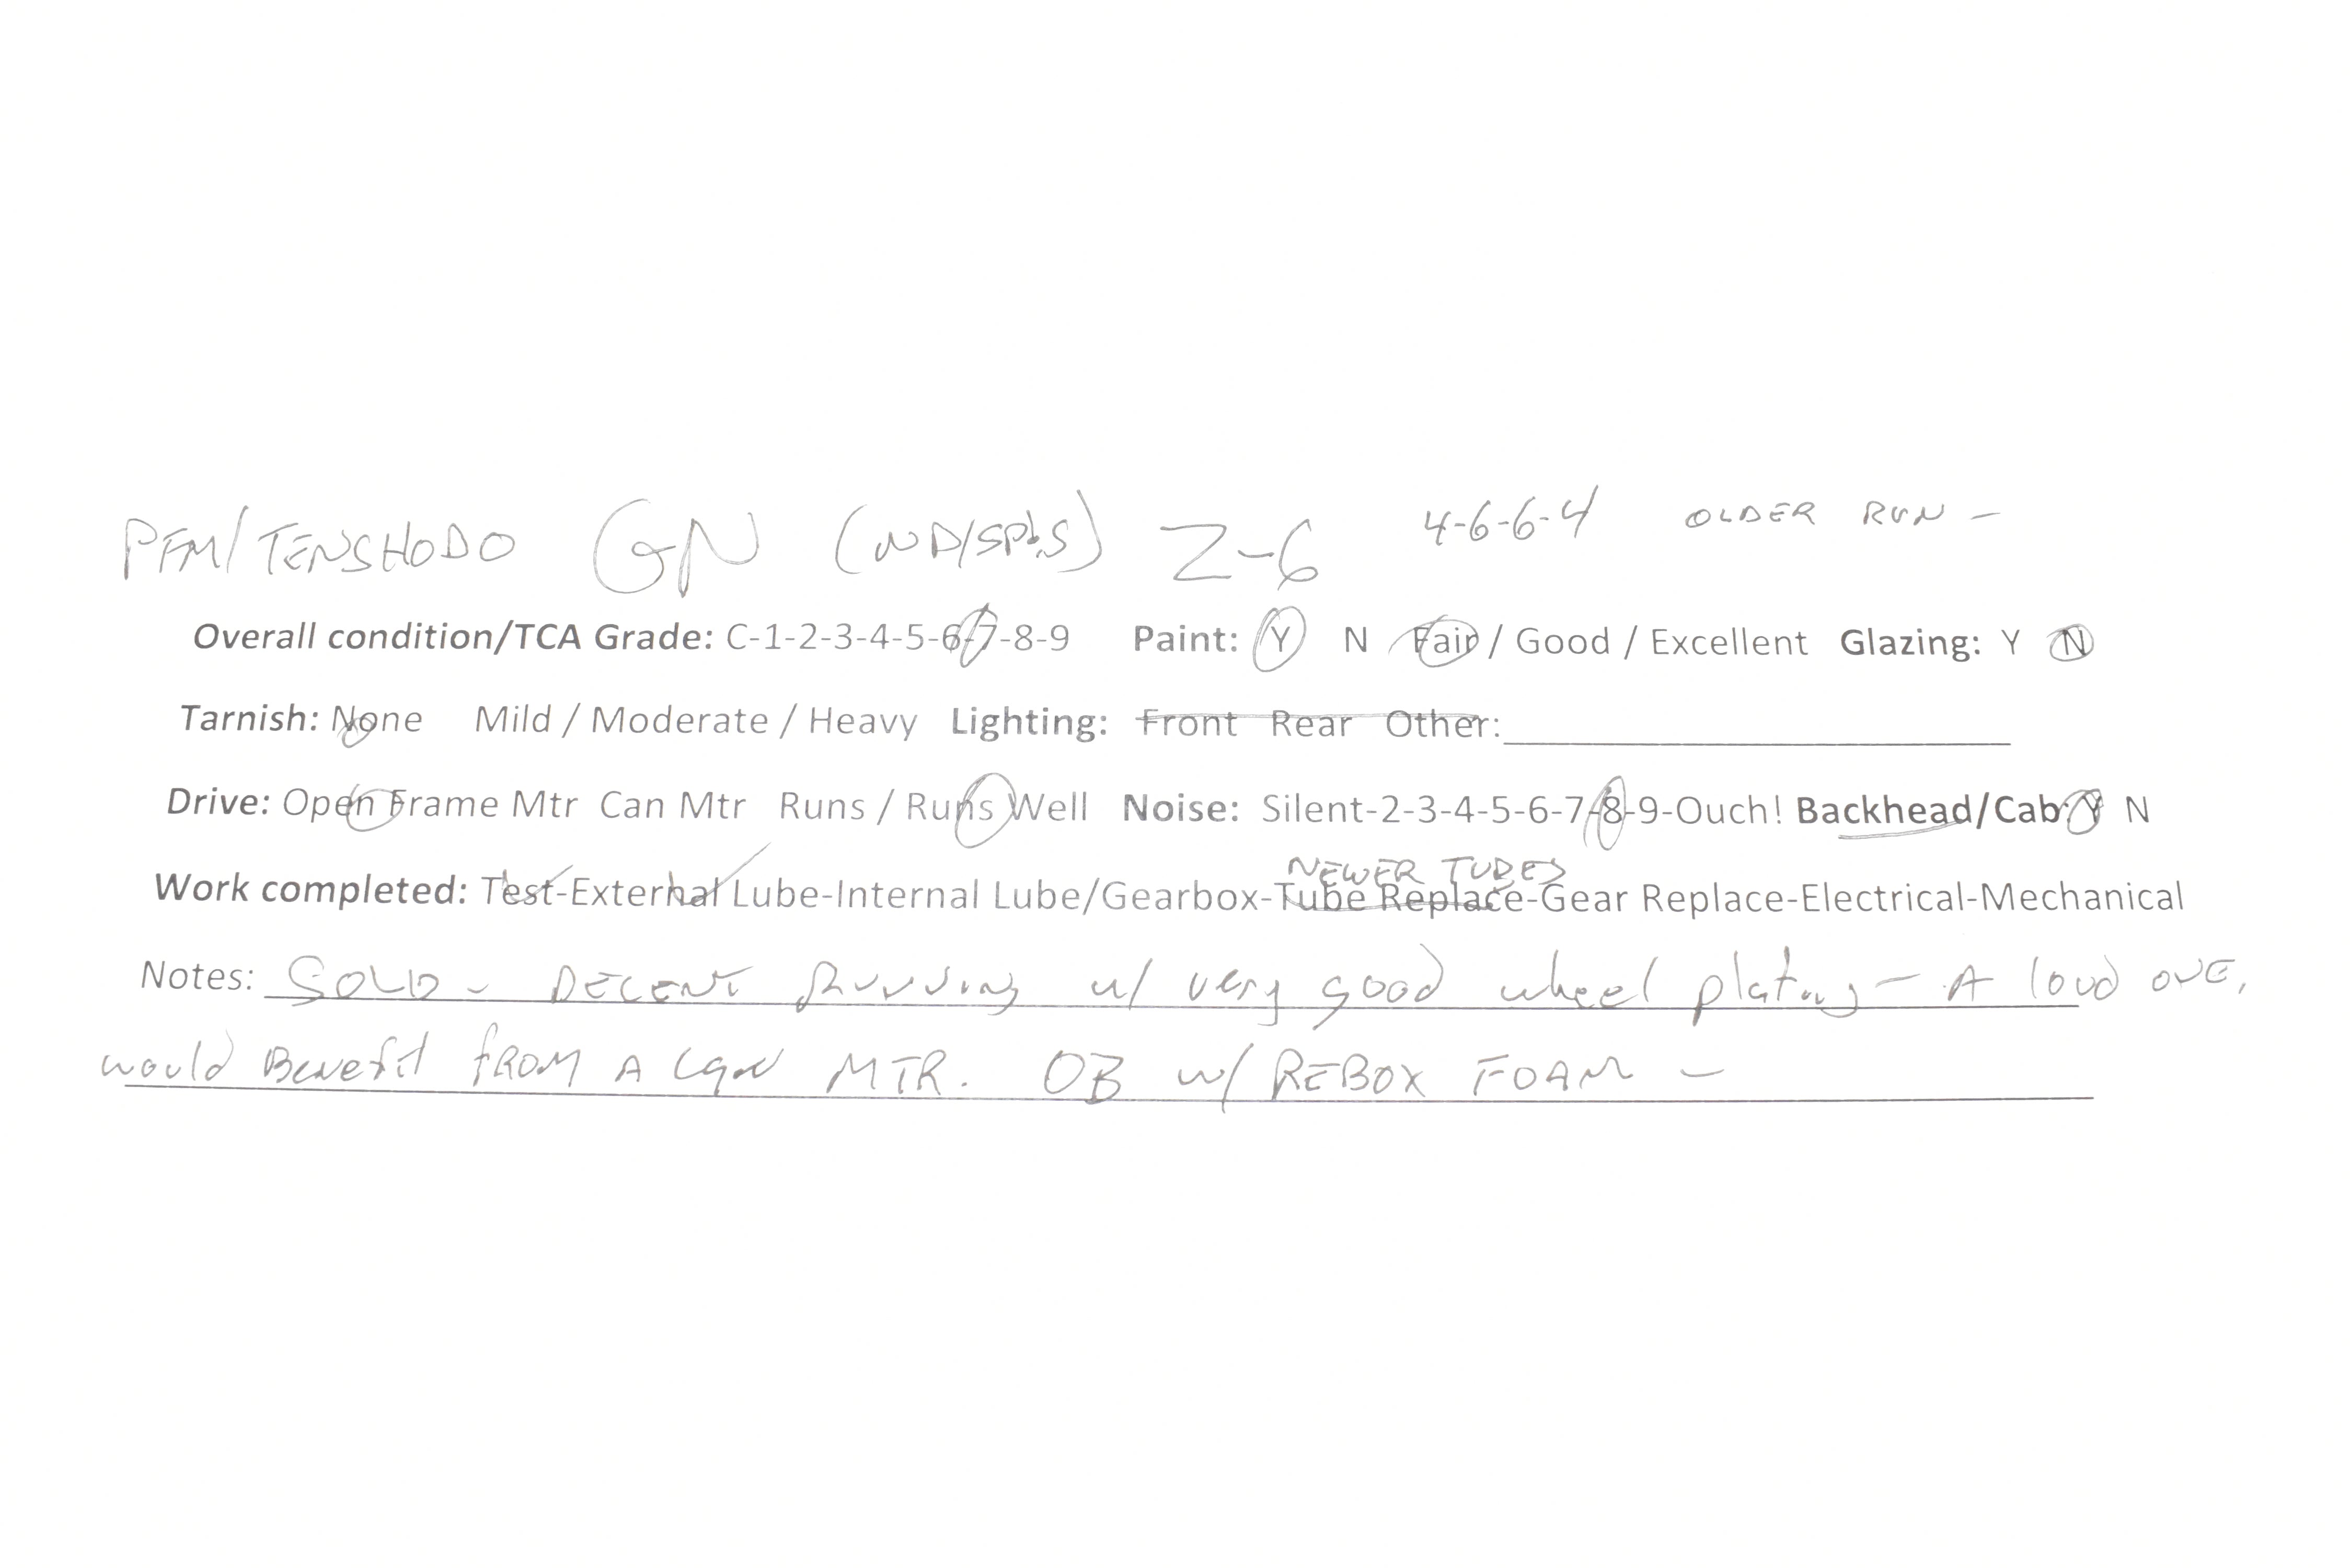 PFM/TENSHODO GN (ND/SP&S) Z-6 4-6-6-4 OLDER RUN -
Overall condition/TCA Grade: C-1-2-3-4-5-6-7-8-9 Paint: Y N Fair / Good / Excellent Glazing: Y N
Tarnish: None Mild / Moderate / Heavy Lighting: Front Rear Other:
Drive: Open Frame Mtr Can Mtr Runs / Runs Well Noise: Silent-2-3-4-5-6-7-8-9-Ouch! Backhead/Cab: Y N
NEWER TUBES
Work completed: Test-External Lube-Internal Lube/Gearbox-Tube Replace-Gear Replace-Electrical-Mechanical
Notes: SOLID - DECENT Running w/ very good wheel plating - A loud one,
would Benefit FROM A can MTR. OB w/ REBOX FOAM -